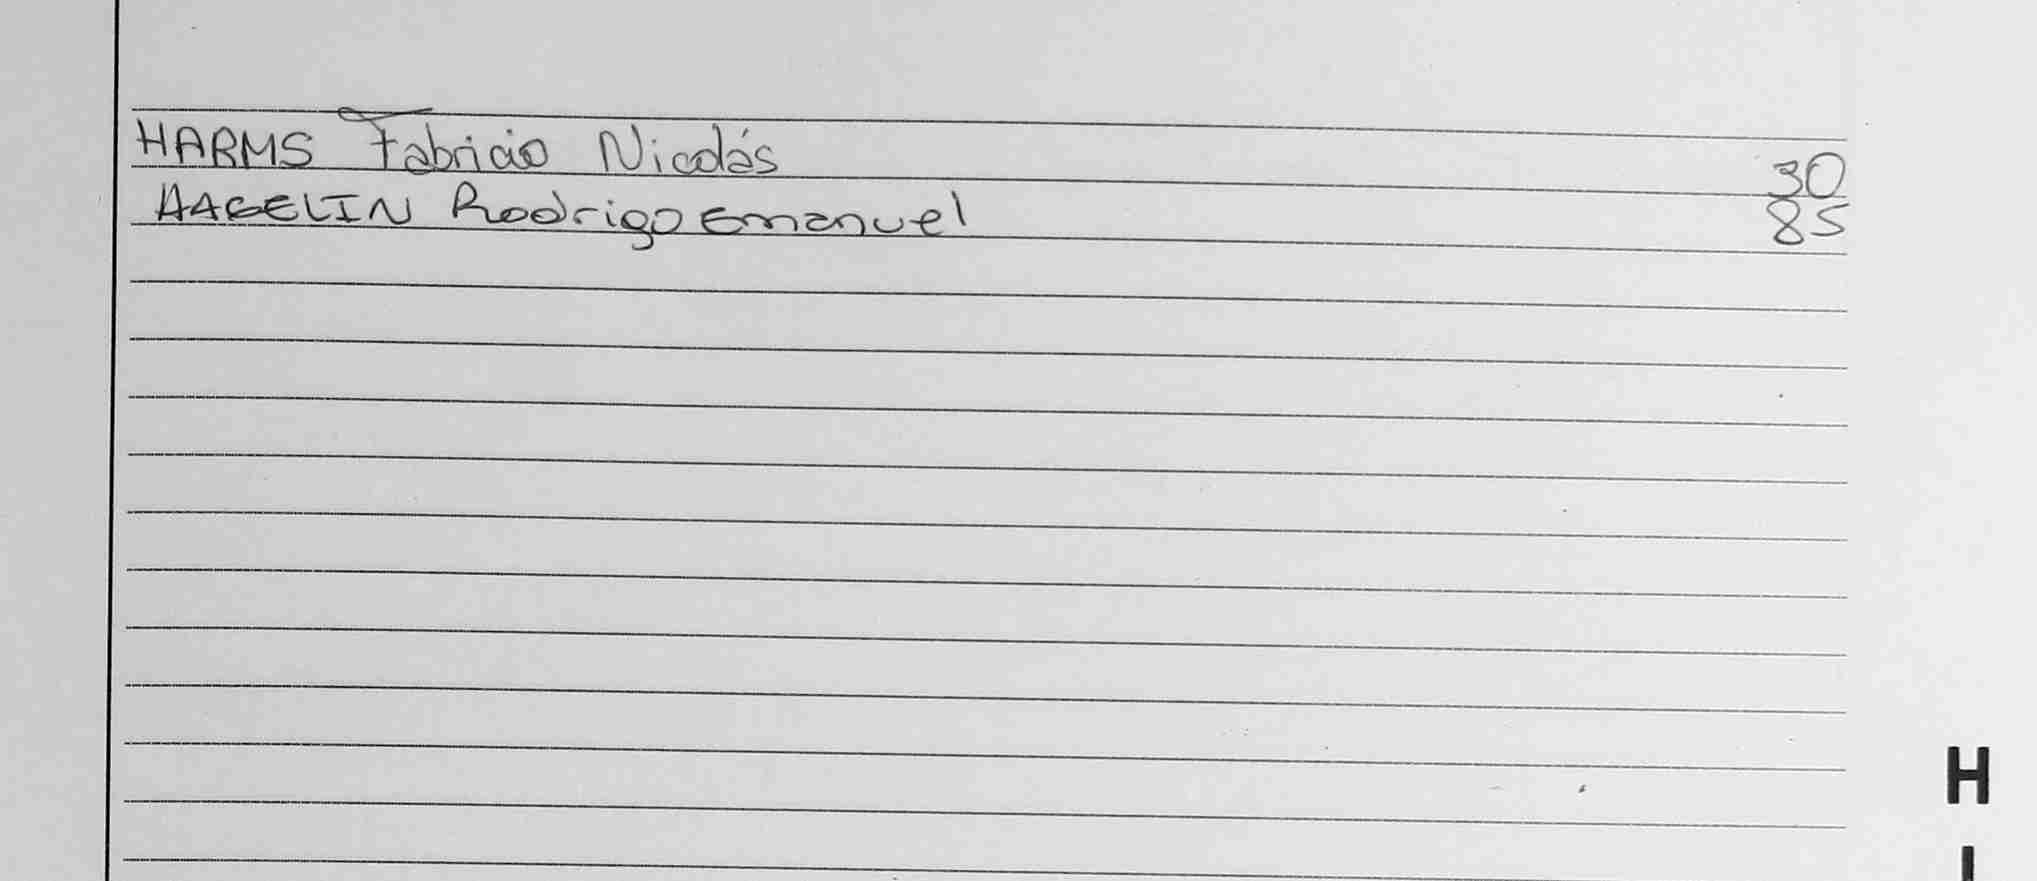 HARMS Fabricio Nicolás 30
HAGELIN Rodrigo Emanuel 85
H